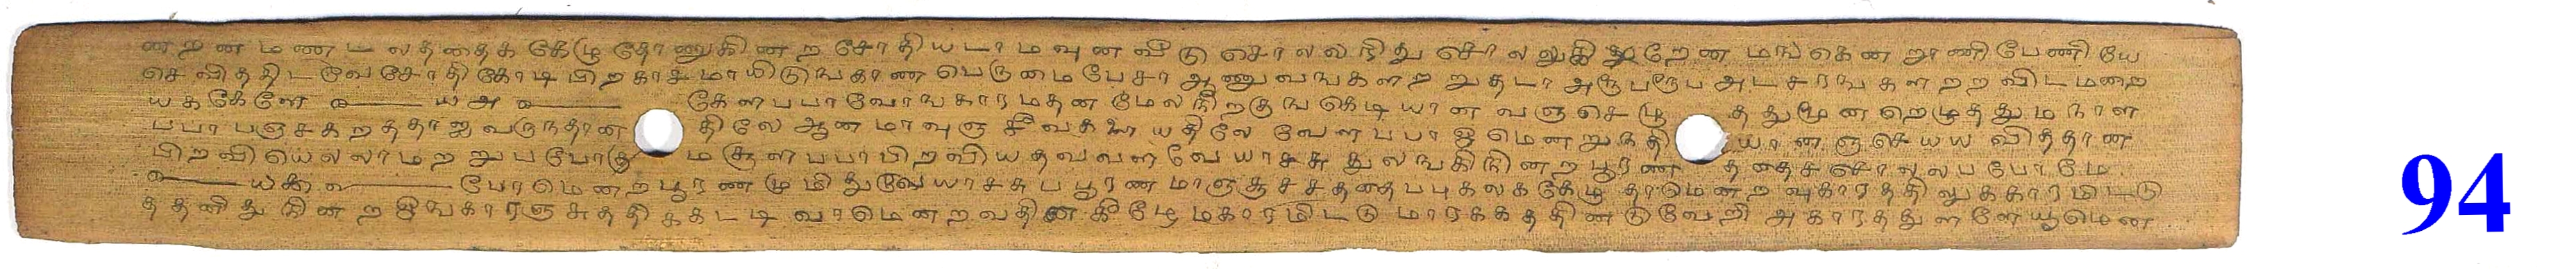 ன ற ன ம ண ட ல த தை க கே ழு தோ ணு கி ன ற சோ தி ய டா ம வு ன வீ டு சொ ல லி நி து சொ ல லு கி றே ன ம ங கை ன றா ணி பே ணி யே
செ வி த தி ட வே சோ தி கோ டி பி ற கா ச மா யி டு ங கா ண பெ ரு மை பே சா ஆ ணு வ ங க ள ற று த டா அ ரூ ப ரூ ப அ ட ச ர ங க ள ற ற வி ட ம றை
ய க கே ளே ய அ கே ள ப பா வோ ங கா ர ம த ன மே ல நி ற கு ங கெ டி யா ன வ ஞ செ ழு த து மூ ன றெ ழு த து ம நா ள
ப பா ப ஞ ச க ற த தா ஜ வ ரு ந தா ன தி லே ஆ ன மா வு ஞ சீ வ க ய தி லே வே ள ப பா ஜ மெ ன று க தி யா ன ஞ செ ய ய வி த தா ன
பி ற வி யெ ல லா ம ற று ப போ கு ம சூ ள ப பா பி ற வி ய த வ வ ள வே யா ச சு து ல ங கி நி ன ற பூ ர ண த தை ச சொ ல ல ப போ மே
ய க போ மெ ன ற பூ ர ண மு மி து வே யா ச சு ப பூ ர ண மா ஞ சூ ச ச த தை ப பு க ல க கே ழு தா மெ ன ற வு கா ர த தி லு க கா ர மி ட டு
த த னி து நி ன ற ஓ ங கா ர ஞ சு த தி க க ட டி வா மெ ன ற வ தி ன கீ ழே ம கா ர மி ட டு மா ர க க த தி ன டு வே றி அ கா ர த து ள ளே யூ மெ ன
94